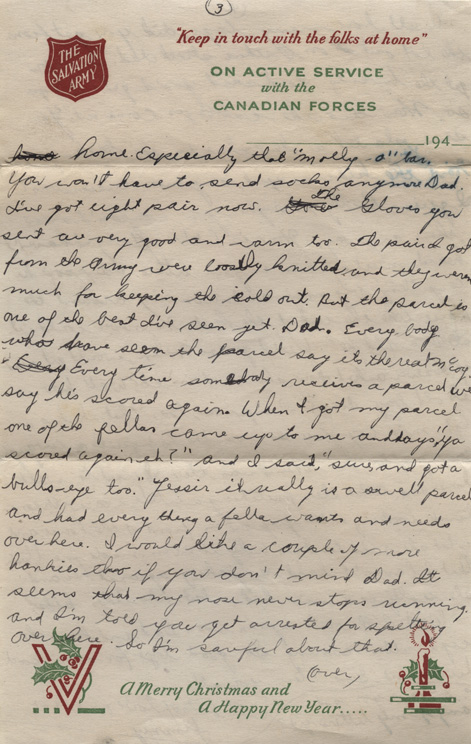 3
"Keep in touch with the folks at home"
THE
SALVATION
ARMY
ON ACTIVE SERVICE
with the
CANADIAN FORCES
194
home. Especially that "Molly-o" bar.
You won't have to send socks anymore Dad.
I've got eight pair now. The Gloves you
sent are very good and warm too. The pair I got
from the Army were loostly knitted and they weren
much for keeping the cold out. But the parcel is
one of the best I've seen yet. Dad. Every body
who have seen the parcel say its the real McCoy
Every time somebody receives a parcel we
say he's scored again. When I got my parcel
one of the fellas came up to me and says, "Ya
scored again eh?" and I said, "sure, and got a
bulls-eye too." Yessir it really is a swell parcel
and had every thing a fella wants and needs
over here. I would like a couple of more
hankies thoo if you don't mind Dad. It
seems that my nose never stops running.
and I'm told you get arrested for spitting
over here. So I'm careful about that.
(over)
V
A Merry Christmas and
A Happy New Year.....